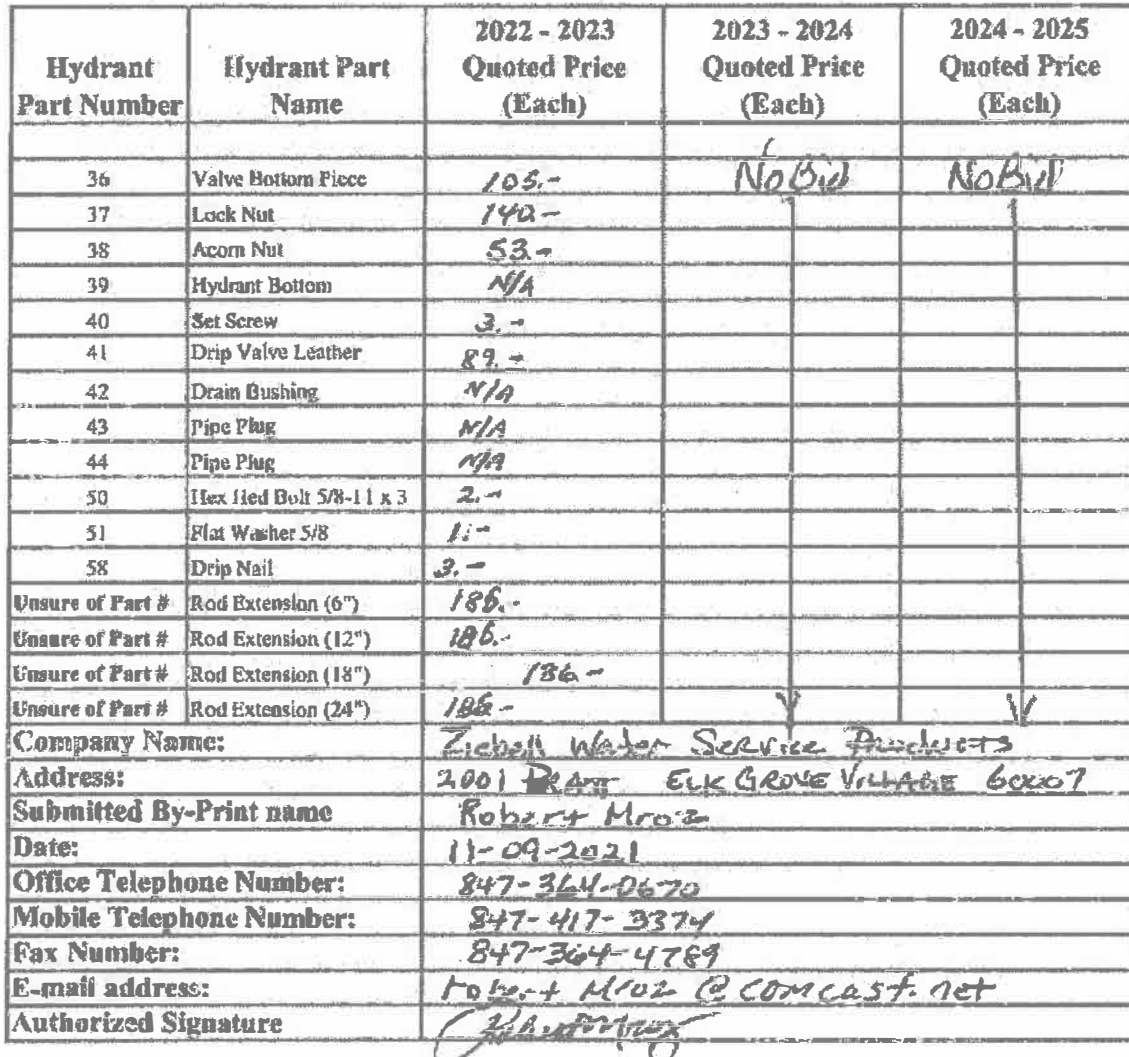 Hydrant Part Number | Hydrant Part Name | 2022 - 2023 Quoted Price (Each) | 2023 - 2024 Quoted Price (Each) | 2024 - 2025 Quoted Price (Each)
36 | Valve Bottom Piece | 105.- | No Bid | No Bid
37 | Lock Nut | 140 -
38 | Acorn Nut | 53.-
39 | Hydrant Bottom | N/A
40 | Set Screw | 3. -
41 | Drip Valve Leather | 89. -
42 | Drain Bushing | N/A
43 | Pipe Plug | N/A
44 | Pipe Plug | N/A
50 | Hex Hed Bolt 5/8-11 x 3 | 2. -
51 | Flat Washer 5/8 | 1. -
58 | Drip Nail | 3. -
Unsure of Part # | Rod Extension (6") | 186.-
Unsure of Part # | Rod Extension (12") | 186.-
Unsure of Part # | Rod Extension (18") | 186 -
Unsure of Part # | Rod Extension (24") | 186 -
Company Name: Ziebell Water Service Products
Address: 2001 Pratt Elk Grove Village 60007
Submitted By-Print name Robert Mroz
Date: 11-09-2021
Office Telephone Number: 847-364-0670
Mobile Telephone Number: 847-417-3374
Fax Number: 847-364-4789
E-mail address: robert Mroz @ comcast.net
Authorized Signature